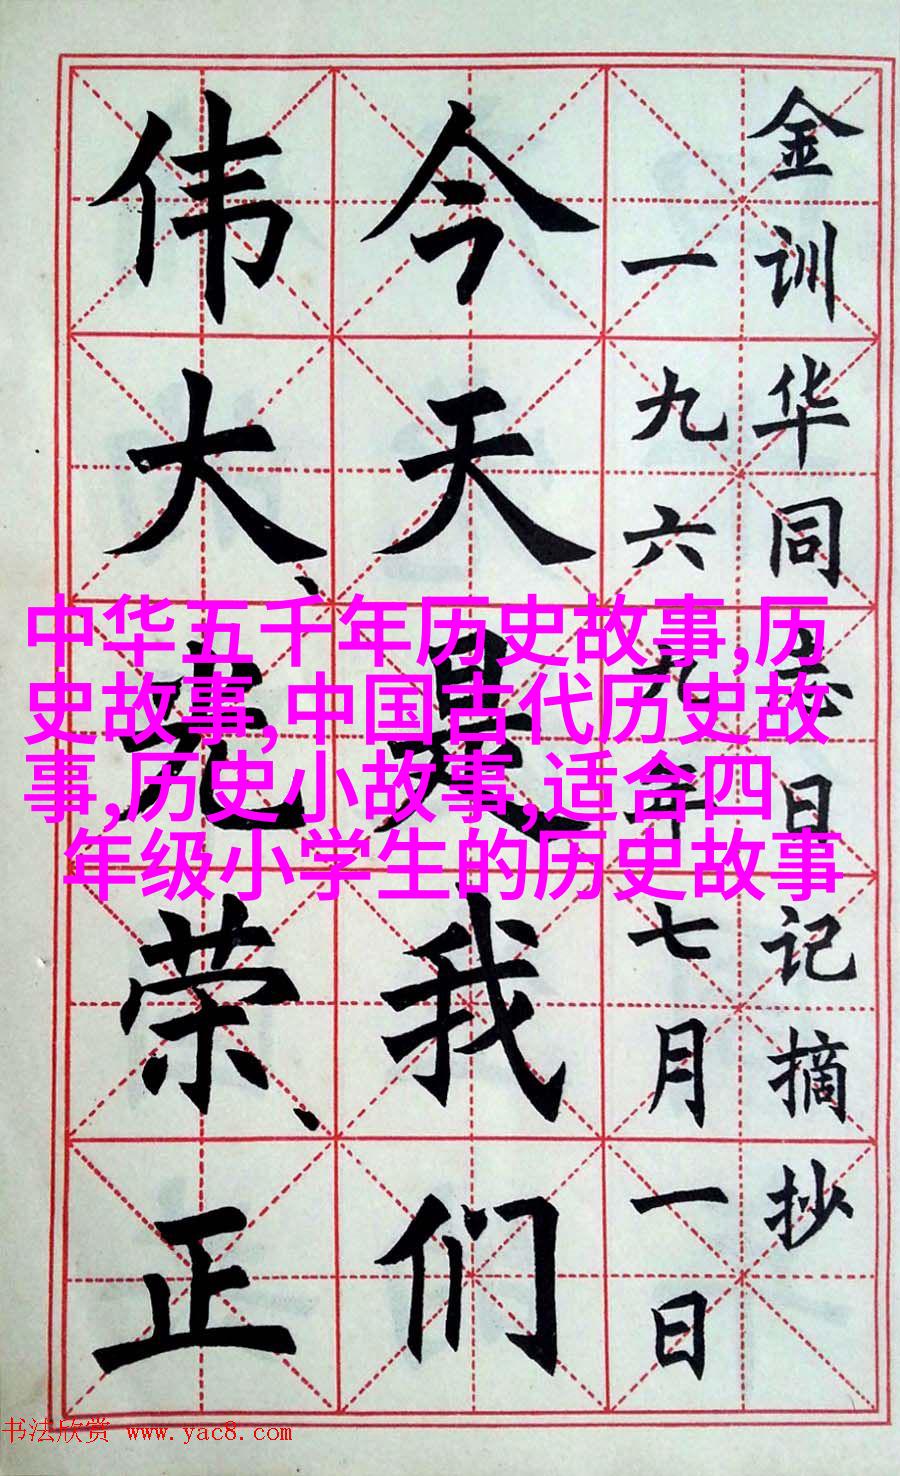 金训华同志日记摘抄
一九六九年七月一日
今天是我们
伟大、光荣、正
中华五千年历史故事,历
史故事,中国古代历史故
事,历史小故事,适合四
年级小学生的历史故事
书法欣赏 www.yac8.com